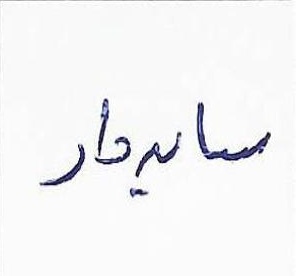 سایہ دار